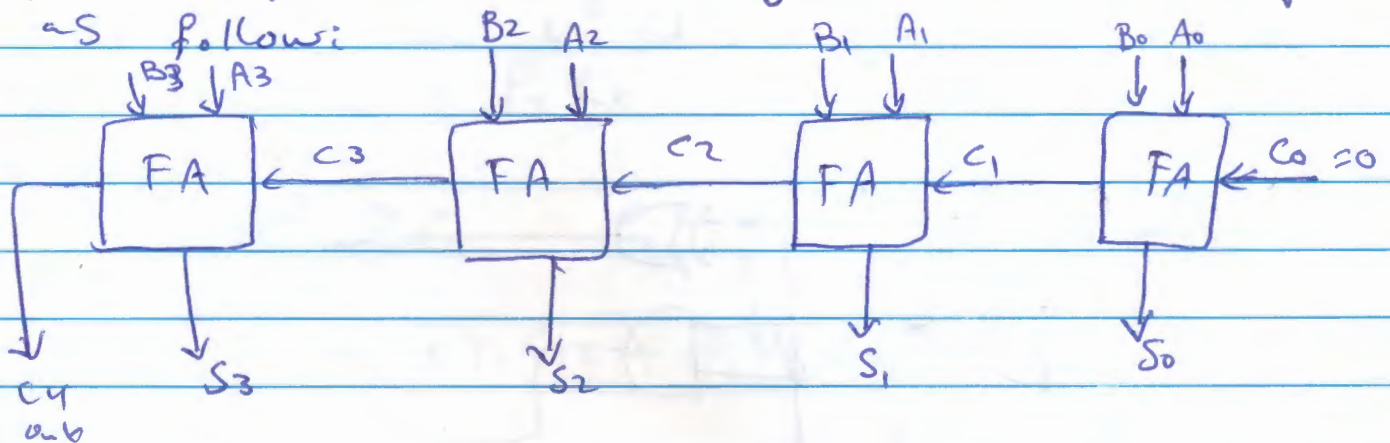 as follow:
B3 A3 B2 A2 B1 A1 B0 A0
FA C3 FA C2 FA C1 FA C0 =0
C4 S3 S2 S1 S0